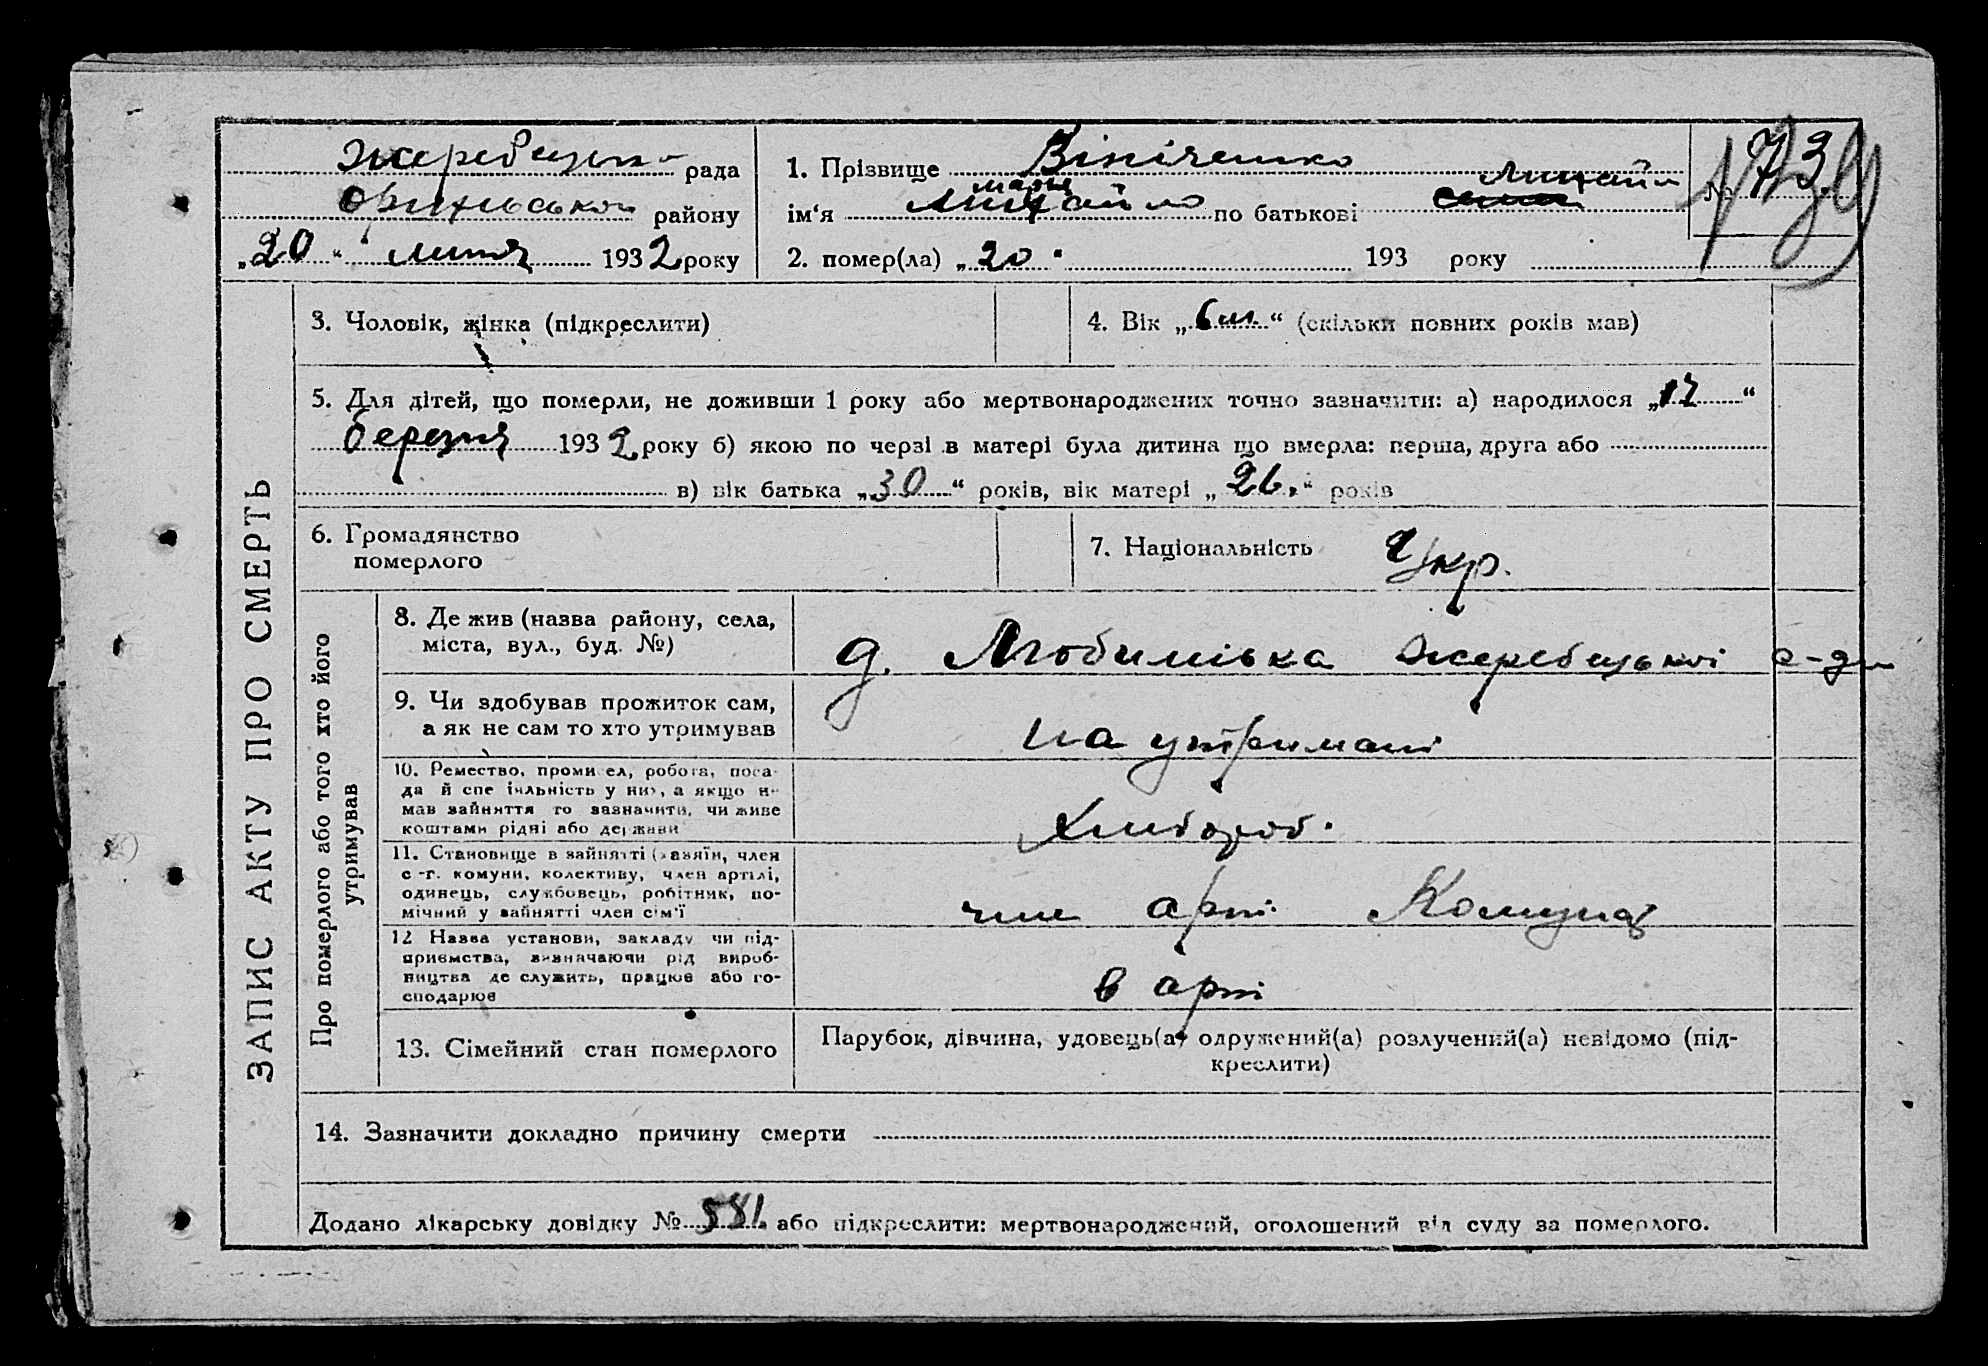 Жеребецька рада
Оріхівського району
„20“ липня 1932 року
1. Прізвище Вініченко
марія
Михайло
ім'я по батькові Михайл
№ 73
2. помер(ла) „20“ 193 року
ЗАПИС АКТУ ПРО СМЕРТЬ
3. Чоловік, жінка (підкреслити)
4. Вік „6 м.“ (скільки повних років мав)
5. Для дітей, що померли, не доживши 1 року або мертвонароджених точно зазначити: а) народилося „17“
березня 1932 року б) якою по черзі в матері була дитина що вмерла: перша, друга або
в) вік батька „30“ років, вік матері „26.“ років
6. Громадянство
померлого
7. Національність Укр.
Про померлого або того хто його
утримував
8. Де жив (назва району, села,
міста, вул., буд. №)
д. Любимівка Жеребецької с-ди
9. Чи здобував прожиток сам,
а як не сам то хто утримував
на утримані
10. Ремество, промисел, робота, поса-
да й спеціяльність у них, а якщо не
мав зайняття то зазначити, чи живе
коштами рідні або держави
Хлібороб.
11. Становище в зайнятті (хазяїн, член
с.-г. комуни, колективу, член артілі,
одинець, службовець, робітник, по-
мічний у зайнятті член сім'ї
член арт. Комунар
12 Назва установи, закладу чи під-
приємства, визначаючи рід вироб-
ництва де служить, працює або го-
сподарює
в арт
13. Сімейний стан померлого
Парубок, дівчина, удовець(а) одружений(а) розлучений(а) невідомо (під-
креслити)
14. Зазначити докладно причину смерти
Додано лікарську довідку № 581 або підкреслити: мертвонароджений, оголошений від суду за померлого.